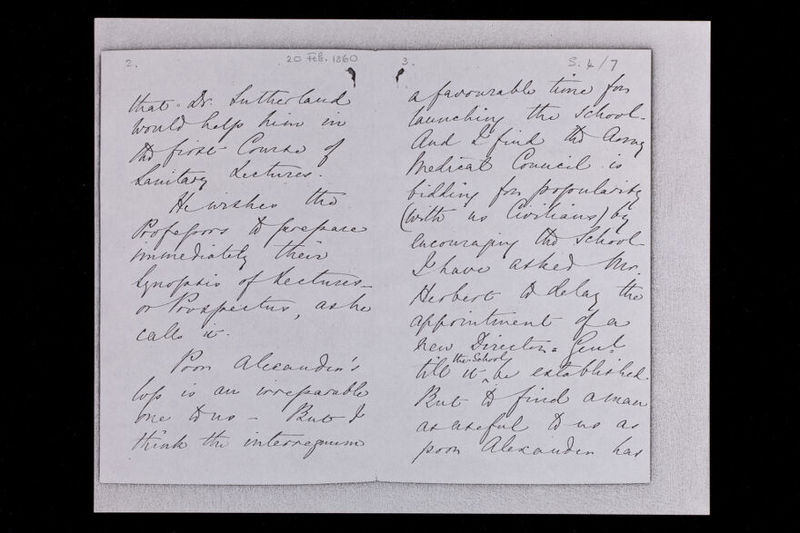 2.
20 Feb. 1860
that Dr. Sutherland
would help him in
the first Course of
Sanitary Lectures.
He wishes the
Professors to prepare
immediately their
Synopsis of Lectures -
or Prospectus, as he
calls it.
Poor Alexander's
loss is an irreparable
one to us - But I
think the interregnum
3.
S. 4/7
a favourable time for
launching the School.
And I find the Army
Medical Council is
bidding for popularity
(with us Civilians) by
encouraging the School
I have asked Mr.
Herbert to delay the
appointment of a
new Director = Genl
till it the School be established.
But to find a man
as useful to us as
poor Alexander has